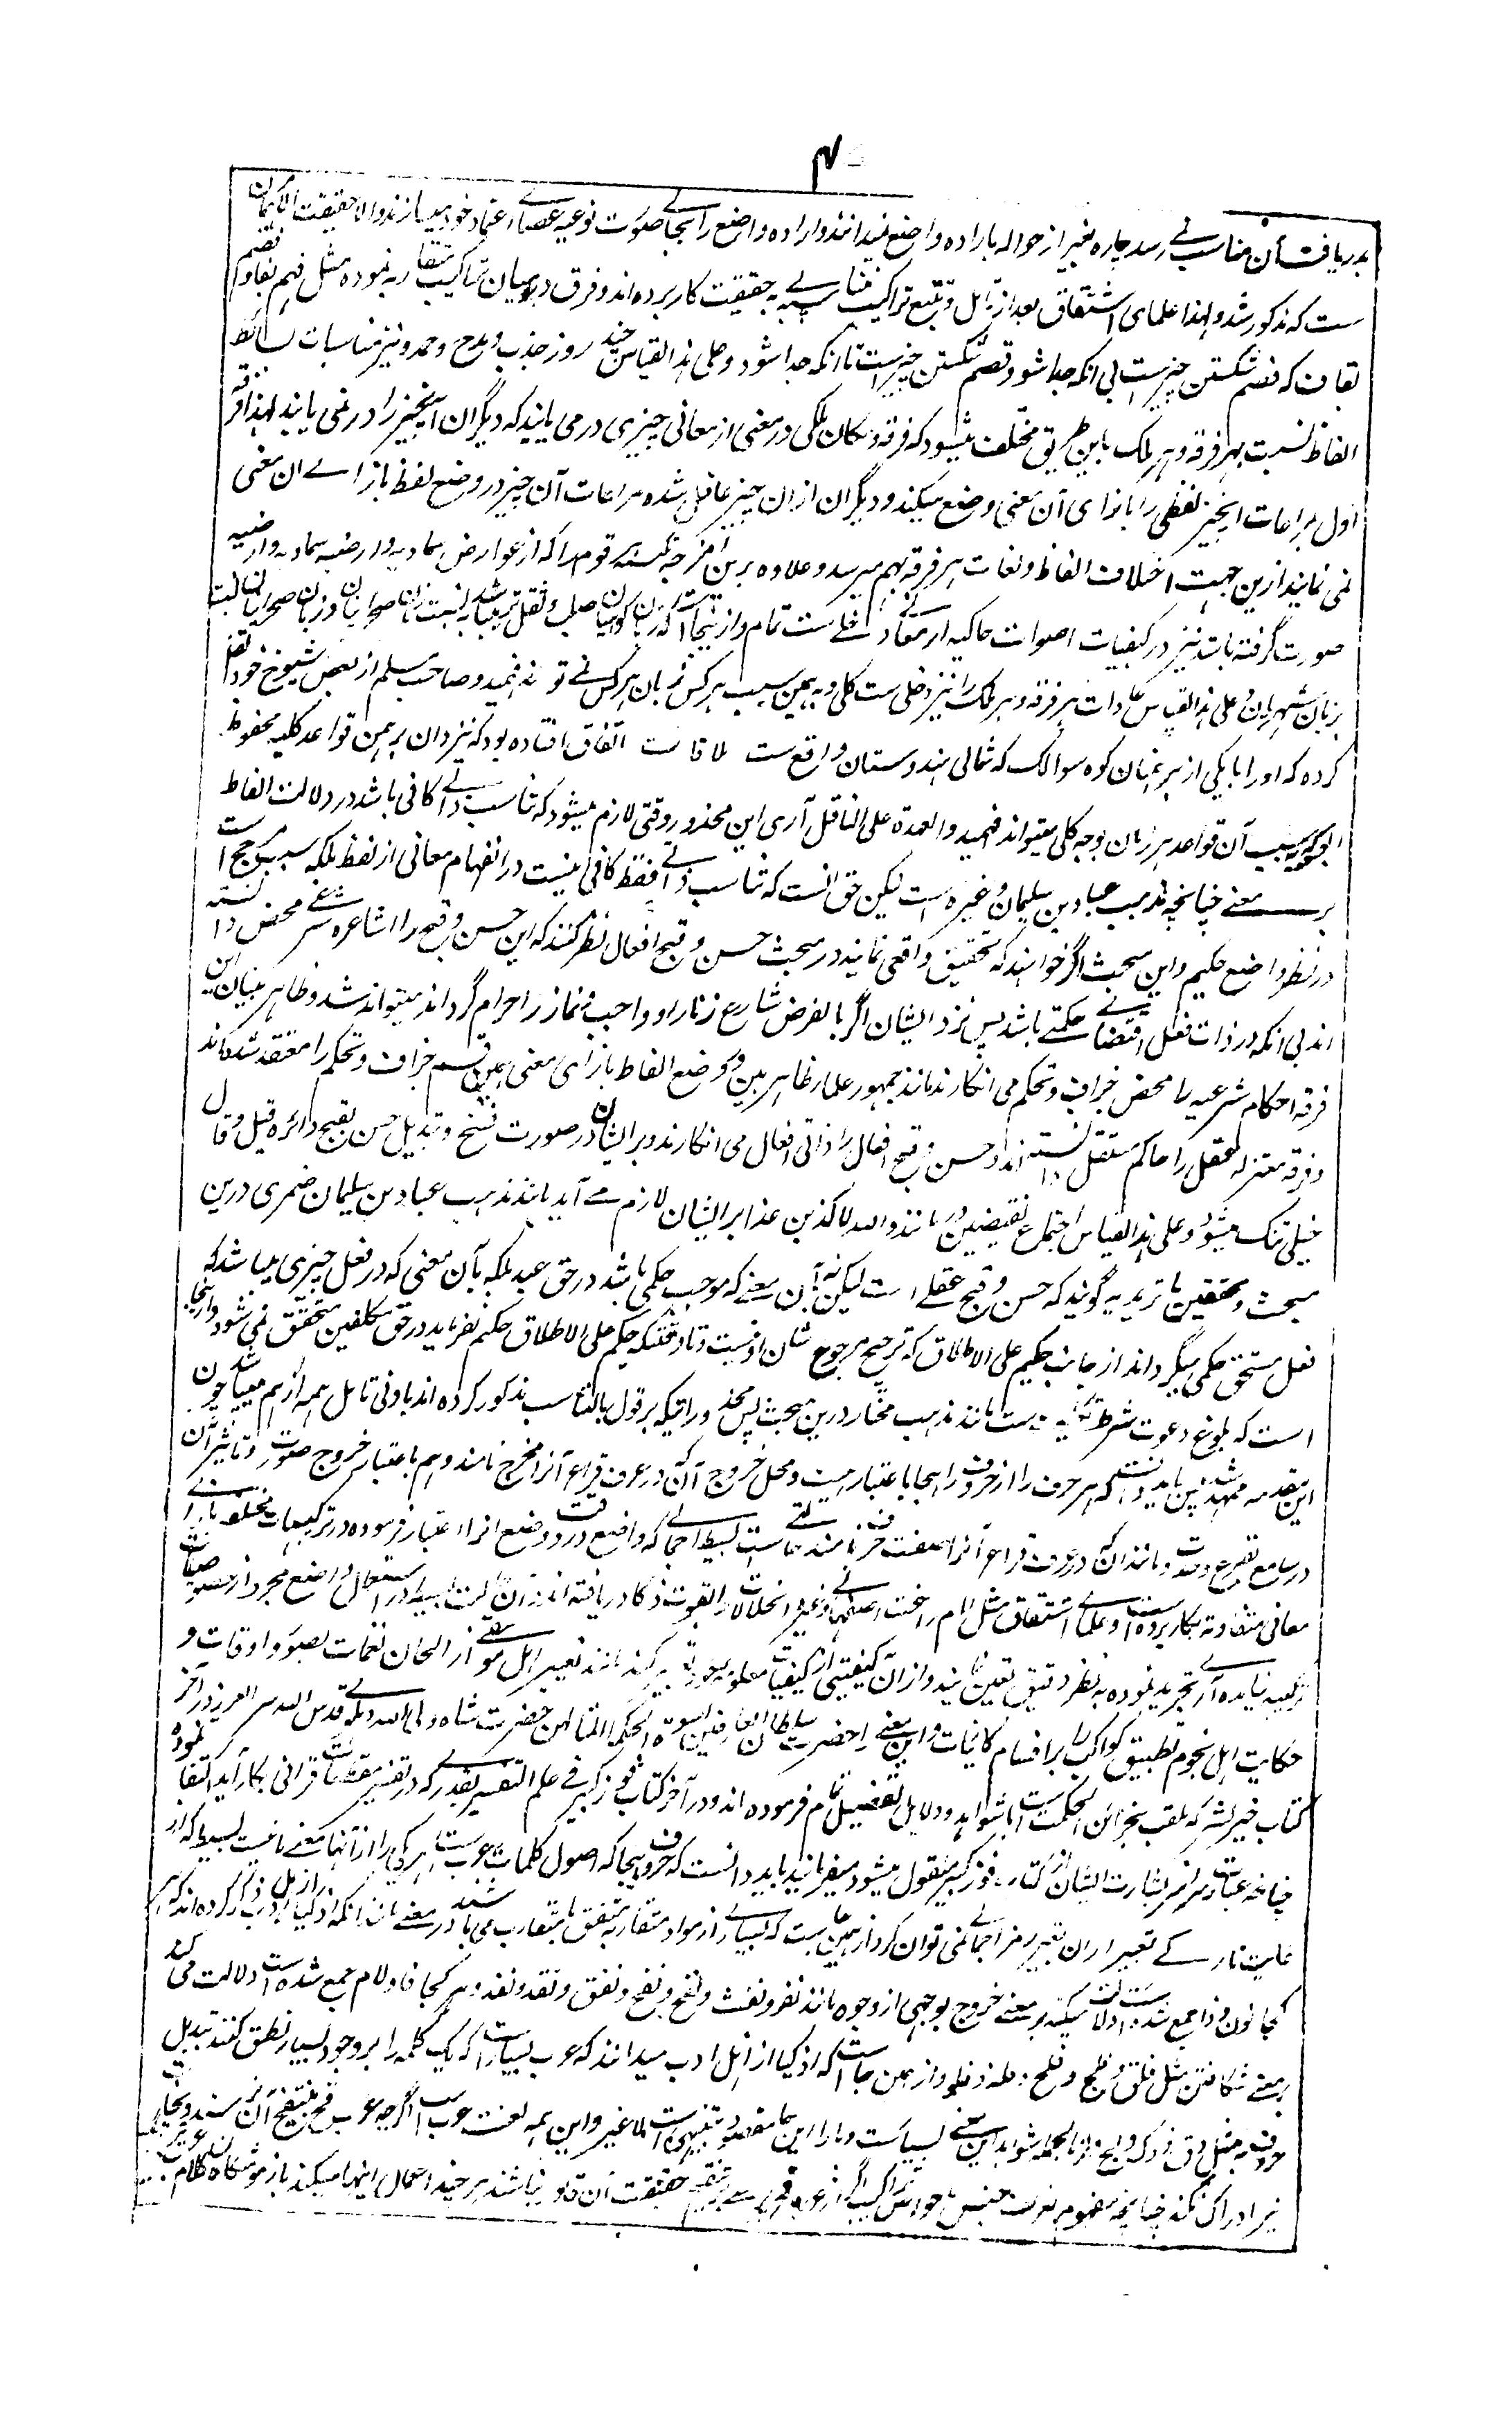 ۴
بدریافت آن مناسب نمی رسد چاره بغیر از حواله باراده واضع نمیدانند و اراده واضع را بجای صورت نوعیه عصای اعتماد خود میسازند والا حقیقت الامر همان
ست که مذکور شد و لهذا علمای اشتقاق بعد از تامل و تتبع تراکیب متناسبه به حقیقت کار برده اند و فرق درمیان تراکیب متقاربه نموده مثل فصم بفا و قصم
بقاف که فصم شکستن چیزیست بی انکه جدا شود و قصم شکستن چیزیست تا انکه جدا شود و علی هذا القیاس جبذ و جذب و مدح و حمد و نیز مناسبات بسائط
الفاظ نسبت بهر فرقه و هر ملک باین طریق مختلف میشود که فرقه و سکان ملکی در معنی از معانی چیزی در می یابند که دیگران آنچیز را در نمی یابند لهذا فرقه
اول بمراعات آنچیز لفظی را بازای آن معنی وضع میکنند و دیگران ازان چیز غافل شده مراعات آن چیز در وضع لفظ بازاے ان معنی
نمی نمایند ازین جهت اختلاف الفاظ و لغات هر فرقه بهم میرسد و علاوه برین امزجه مکتسبه هر قوم را که از عوارض سماویه و ارضیه
صورت گرفته باشد نیز در کیفیات اصوات حاکیه از معانی دخلے ست تمام و از ینجاست که زبان کوهیان صلب و ثقیل تر میباشد نسبت زبان صحرائیان و زبان صحرائیان نسبت
بزبان شهریان و علی هذا القیاس عادات هر فرقه و هر ملک را نیز دخلی ست کلی و به همین سبب هر کس زبان هر کس نمی تواند فهمید و صاحب سلم از بعض شیوخ خود نقل
کرده که اورا با یکی از برهمنان کوه سوالک که شمالی هندوستان واقع ست ملاقات اتفاق افتاده بود که نزد ان برهمن قواعد کلیه محفوظ
بود که بسبب آن قواعد هر زبان بوجه کلی میتواند فهمید والعهدة علی الناقل آری این محذور وقتی لازم میشود که تناسب ذاتی کافی باشد در دلالت الفاظ
بر معنے چنانچه مذهب عباد بن سلیمان و غیره است لیکن حق انست که تناسب ذاتی فقط کافی نیست در انفهام معانی از لفظ بلکه سبب ترجیح است
در نظر واضع حکیم و این مبحث اگر خواهند که تحقیق واقعی نمایند در مبحث حسن و قبح افعال نظر کنند که این حسن و قبح را اشاعره شرعی محض دانسته
اند بی انکه در ذات فعل اقتضای حکمتے باشد پس نزد ایشان اگر بالفرض شارع زنا را و واجب و نماز را حرام گرداند میتواند شد و ظاهر بینان این
فرقه احکام شرعیه را محض جزاف و تحکم می انگارند مانند جمهور علمای ظاهر بین که وضع الفاظ بازای معنی بهمین قسم جزاف و تحکم را معتقد شده اند
و فرقه معتزله عقل را حاکم مستقل دانسته اند و حسن و قبح افعال را ذاتی افعال می انگارند و بر ایشان در صورت نسخ و تبدیل حسن بقبح دائره قیل و قال
خیلی تنگ میشود و علی هذا القیاس اجتماع نقیضین در مانند والله لاکذبن غدا بر ایشان لازم مے آید مانند مذهب عباد بن سلیمان ضمری درین
مبحث و محققین ماتریدیه گویند که حسن و قبح عقلے است لیکن نه بآن معنے که موجب حکمی باشد در حق عبد بلکه بآن معنی که در فعل چیزی میباشد که
فعل مستحق حکمی میگرداند از جانب حکیم علی الاطلاق که ترجیح مرجوح شان او نیست و تا وقتیکه حکیم علی الاطلاق حکم نفرماید در حق مکلفین متحقق نمی شود و از ینجا
است که بلوغ دعوت شرط ست مانند مذهب مختار درین مبحث پس محذوراتیکه بر قول بالتناسب مذکور کرده اند بادنی تامل همه از هم میپاشد چون
این مقدمه ممهد شد پس باید دانست که هر حرف را از حروف هجا باعتبار هیئت و محل خروج آن که در عرف قراء آنرا مخرج نامند و هم باعتبار خروج صوت و تاثیر آن
در سامع بقرع و مانند ان که در عرف قراء آنرا صفت حرف نامند حالتے ست بسیط اجمالے که واضع در وقت وضع انرا اعتبار فرموده در ترکیبات مختلفه بازاے
معانی متفاوته بکار برده است و علمای اشتقاق مثل امام راغب اصفهانی و غیره
ترکیبیه نیابده آن تجرید نموده به نظر دقیق تعین مینمایند و ازان کیفیتی از کیفیات معلومه تعبیر میکنند مانند تعبیر اهل موسیقی از الحان نغمات بصور و اوقات و
حکایت اهل نجوم تطبیق کواکب را بر اقسام کائنات و این معنے را حضرت سلطان العارفین اسوة الحکماء المتالهین حضرت شاه ولی الله دهلوی قدس الله سره العزیز در آخر
کتاب خیر کثیر که ملقب بخزائن الحکمت است با شواهد و دلائل بتفصیل تمام فرموده اند و در آخر کتاب فوز کبیر فی علم التفسیر بقدریکه در تفسیر مقطعات قرآنی بکار آید اکتفا نموده
چنانچه عبارت سراسر بشارت ایشان از کتاب فوز کبیر منقول میشود میفرمایند باید دانست که حروف هجا که اصول کلمات عرب ست هر یکی را از آنها معنے ست بسیط که از
غایت نازکے تعبیر ازان بتعبیر رمز اجمالے نمی توان کرد از همین جاست که بسیاری از مواد متقاربه متفق یا متقارب می باشد در معنے مانند انکه اذکیای اهل ادب ذکر کرده اند که هر
کجا نون و فا جمع شده است دلالت میکند بر معنے خروج بوجهی از وجوه مانند نفر و نفث و نفح و نفخ و نفق و نفد و نفذ و هر کجا فا و لام جمع شده است دلالت می کند
بر معنے شکافتن مثل فلق و فلح و فلج و فلذ و از همین جاست که اذکیا از اهل ادب میدانند که عرب بسیار است که یک کلمه را بر وجوه بسیار نطق کنند بتبدیل
حروف مثل دق و دک و لج و لز بالجمله شواهد این معنے بسیار ست و مارا این جا مقصود تنبیه است لا غیر و این همه لغت عرب ست اگرچه عرب قح بتنقیح آن نرسند و نحاة
نیز ادراک نکنند چنانچه مفهوم تعریف جنس و خواص تراکیب اگر از عرب قح پرسے بتنقیح حقیقت آن قادر نباشند هر چند استعمال اینها میکنند باز موشگافان کلام